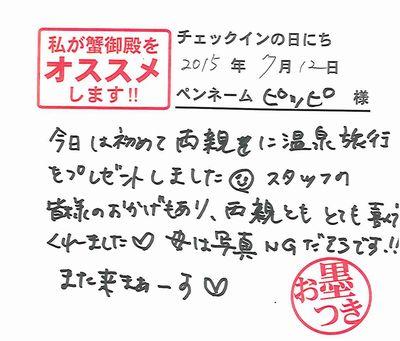 私が蟹御殿を
オススメ
します!!
チェックインの日にち
2015 年 7月 12日
ペンネーム ピッピ 様
今日は初めて両親をに温泉旅行
をプレゼントしました☺ スタッフの
皆様のおかげもあり、両親とも とても喜んで
くれました♡ 母は写真NGだそうです!!
また来まぁーす♡
お墨
つき